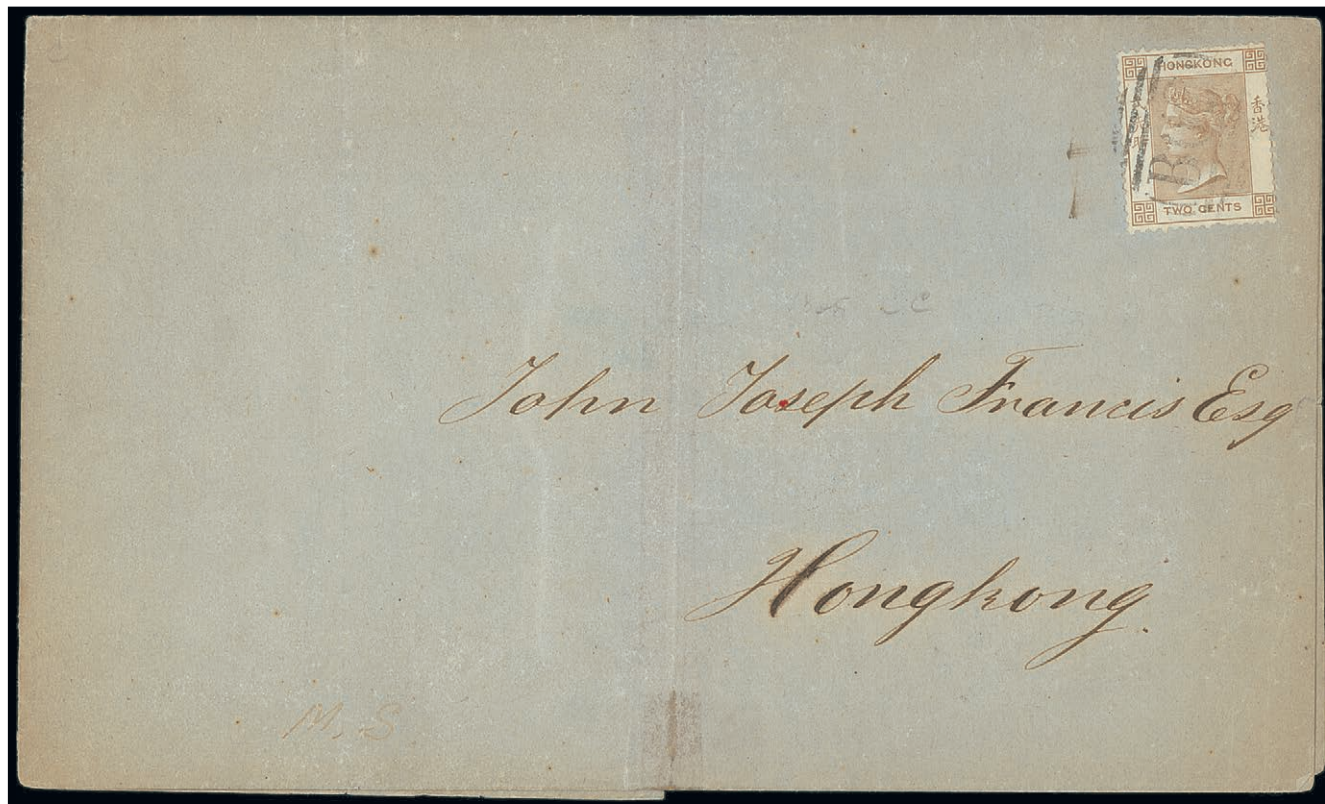 HONGKONG
香港
B
TWO CENTS
John Joseph Francis Esq
Hongkong.
M. S.